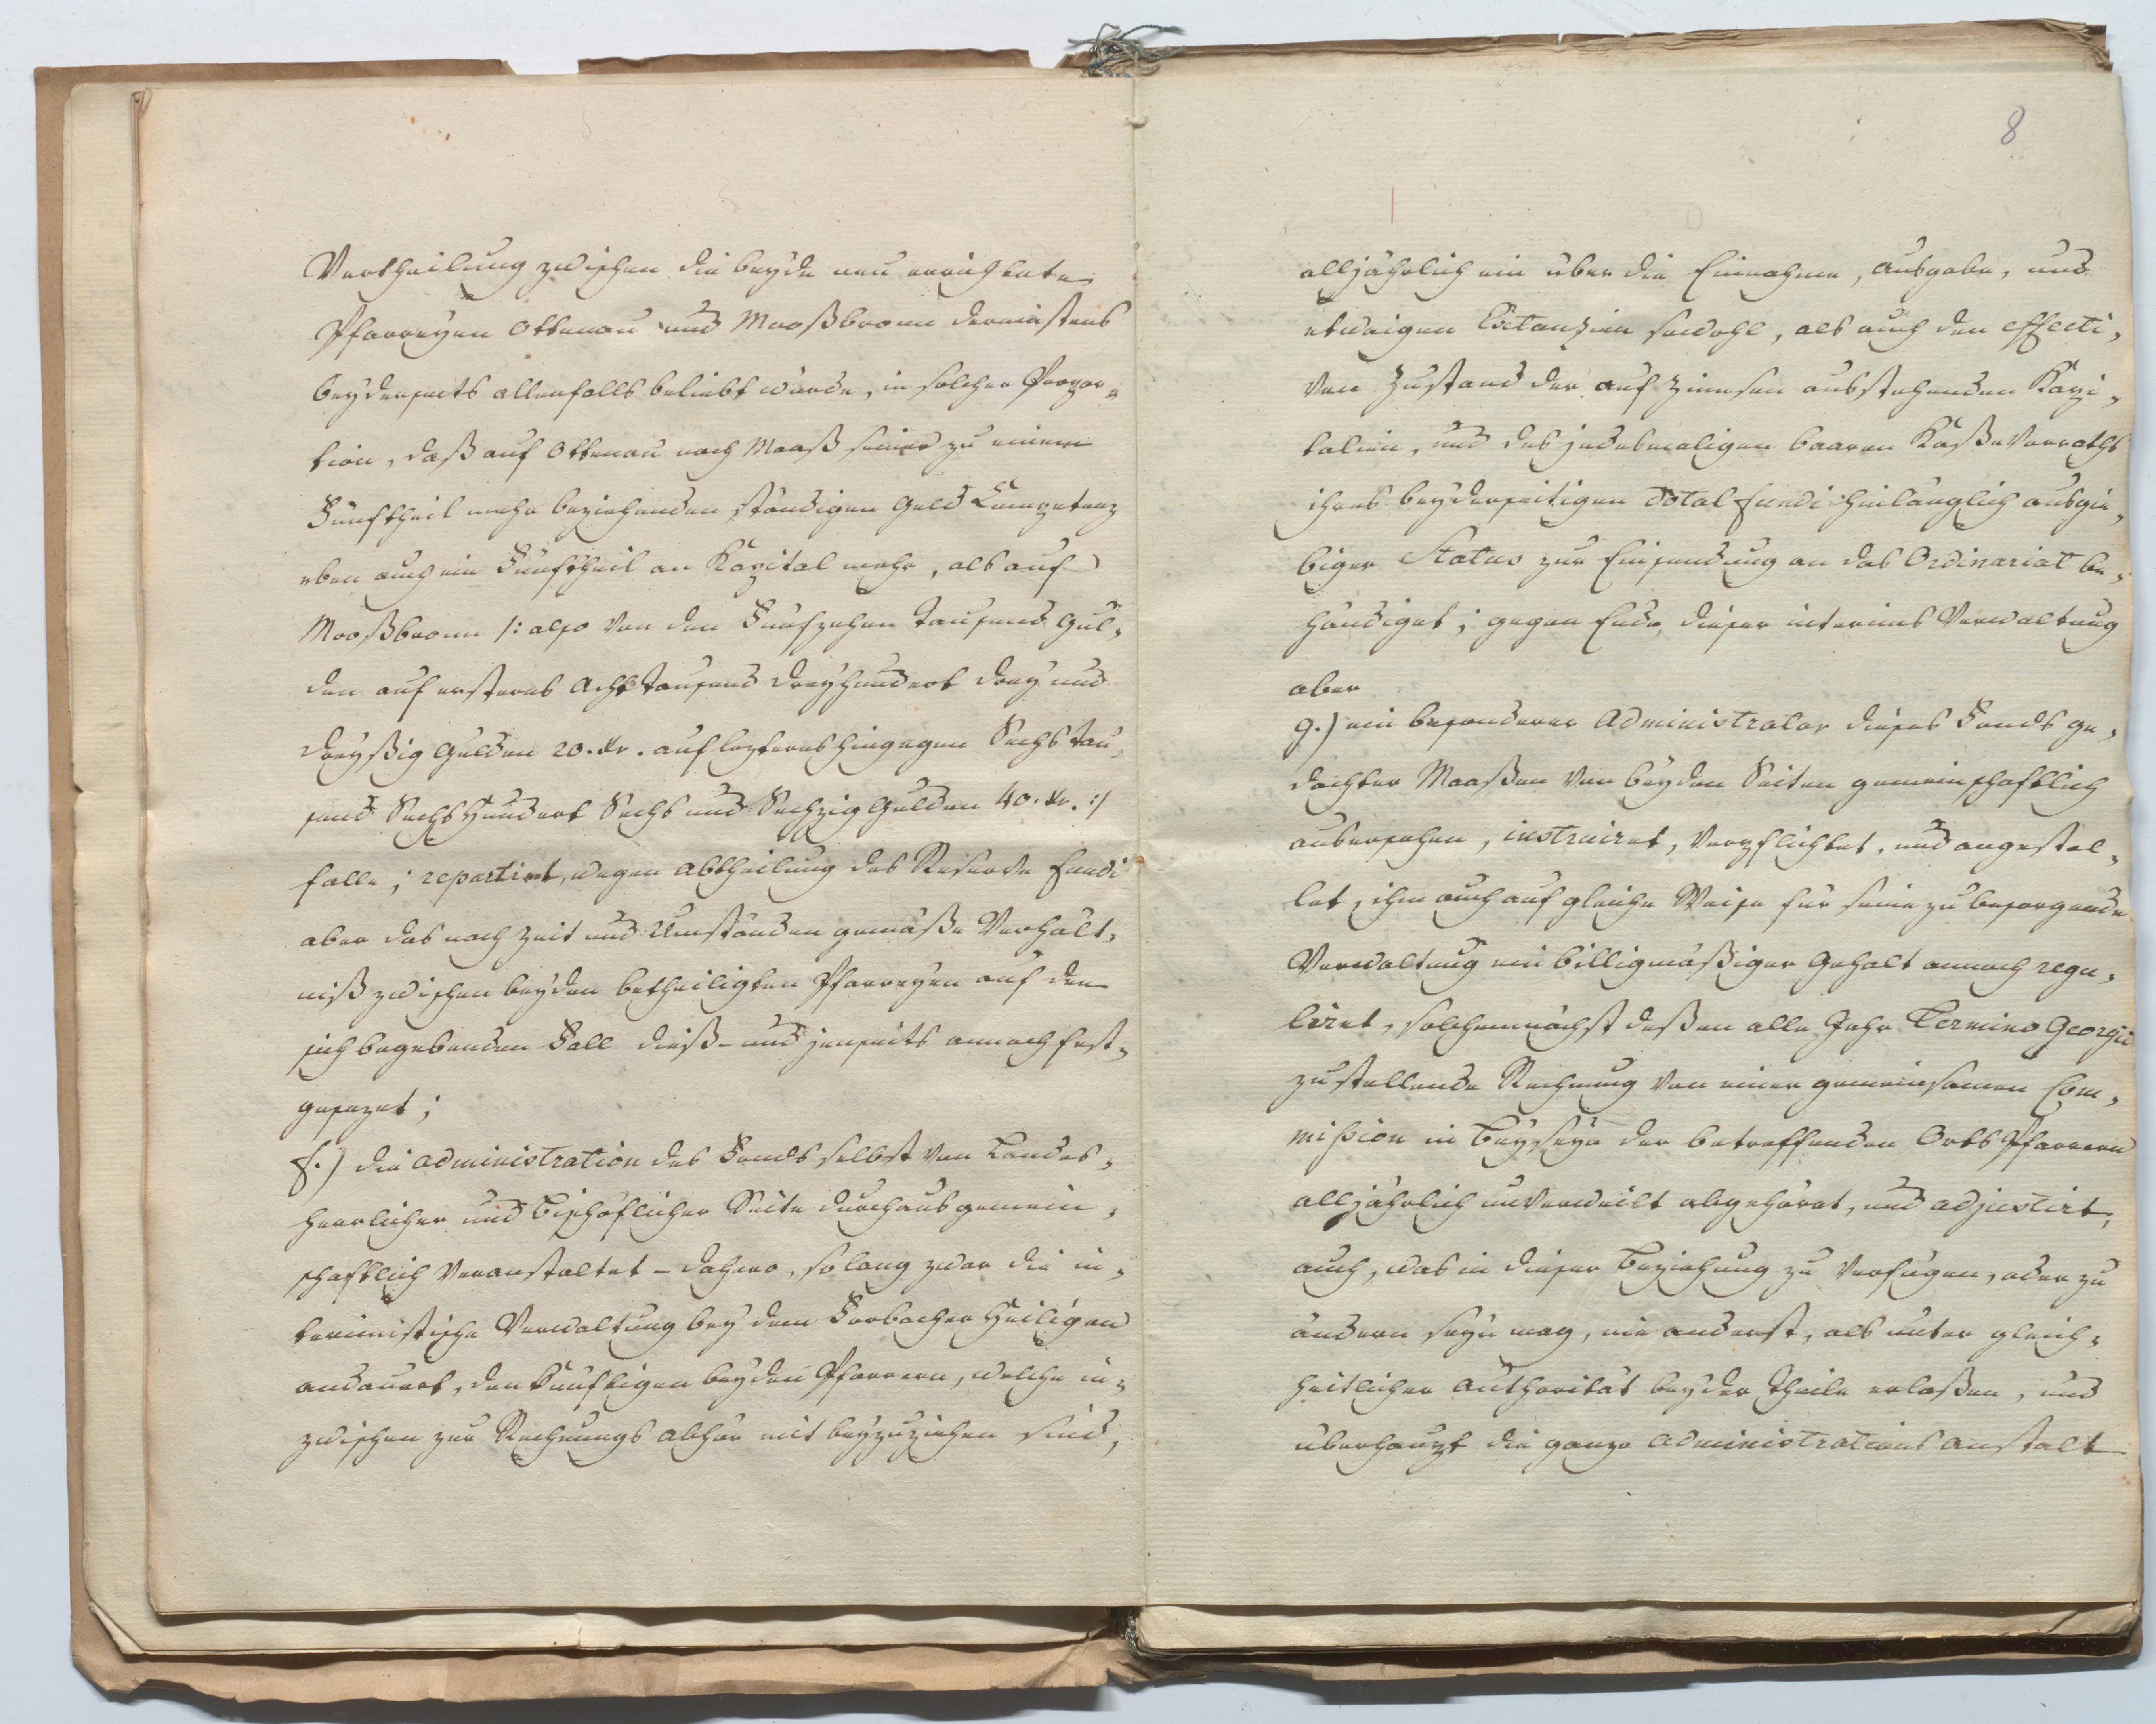 Vertheilung zwischen die beyde neu errichtete
Pfarreyen Ottenau und Mooßbronn dereinstens
beyderseits allenfalls beliebt würde, in solcher Propor„
tion, daß auf Ottenau nach Maaß seiner zu einem
Fünftheil mehr beziehenden ständigen Geld Competenz
eben auch ein Fünftheil an Kapital mehr, als auf
Mooßbronn /: also von den Fünfzehen Tausend Gul„
den auf ersteres Acht Tausend Dreyhundert drey und
dreyßig Gulden 20. Kr. auf lezteres hingegen Sechs Tau„
send Sechs Hundert Sechs und Sechzig Gulden 40. Kr. :/
falle; repartirt, wegen Abtheilung des Reserve Fundi
aber das nach Zeit und Umständen gemäße Verhält„
niß zwischen beyden betheiligten Pfarreyen auf den
sich begebenden Fall dieß- und jenseits annoch fest„
gesezet;
f.) die Administration des Fonds selbst von Landes„
herrlicher und Bischöflicher Seite durchaus gemein„
schaftlich veranstaltet – dahero, so lang zwar die in„
terimistische Verwaltung bey dem Forbacher Heiligen
andauert, den künftigen beyden Pfarrern, welche in„
zwischen zur Rechnungs Abhör mit beyzuziehen sind,
8
alljährlich ein über die Einnahme, Ausgabe, und
etwaigen Extanzien sowohl, als auch den effecti„
ven Zustand der auf Zinnsen ausstehenden Kapi„
talien, und des jedesmaligen baaren Kaße Vorraths
ihres beyderseitigen Dotal Fundi hinlänglich ausgie„
biger Status zur Einsendung an das Ordinariat be„
händiget; gegen Ende dieser interims Verwaltung
aber
g.) ein besonderer Administrator dieses Fonds ge„
dachter Maaßen von beyden Seiten gemeinschaftlich
ausersehen, instruiret, verpflichtet, und angestel„
let, ihm auch auf gleiche Weise für seine zu besorgende
Verwaltung ein billigmäßiger Gehalt annoch regu„
liret, solchemnächst deßen alle Jahr Termino Georgii
zu stellende Rechnung von einer gemeinsamen Com„
mißion in Beyseyn der betreffenden Orts Pfarrern
alljährlich unverweilt abgehöret, und adjustirt,
auch, was in dieser Beziehung zu verfügen, oder zu
ändern seyn mag, nie anderst, als unter gleich„
heitlicher Authorität beyder Theile erlaßen, und
überhaupt die ganze Administrations Anstalt